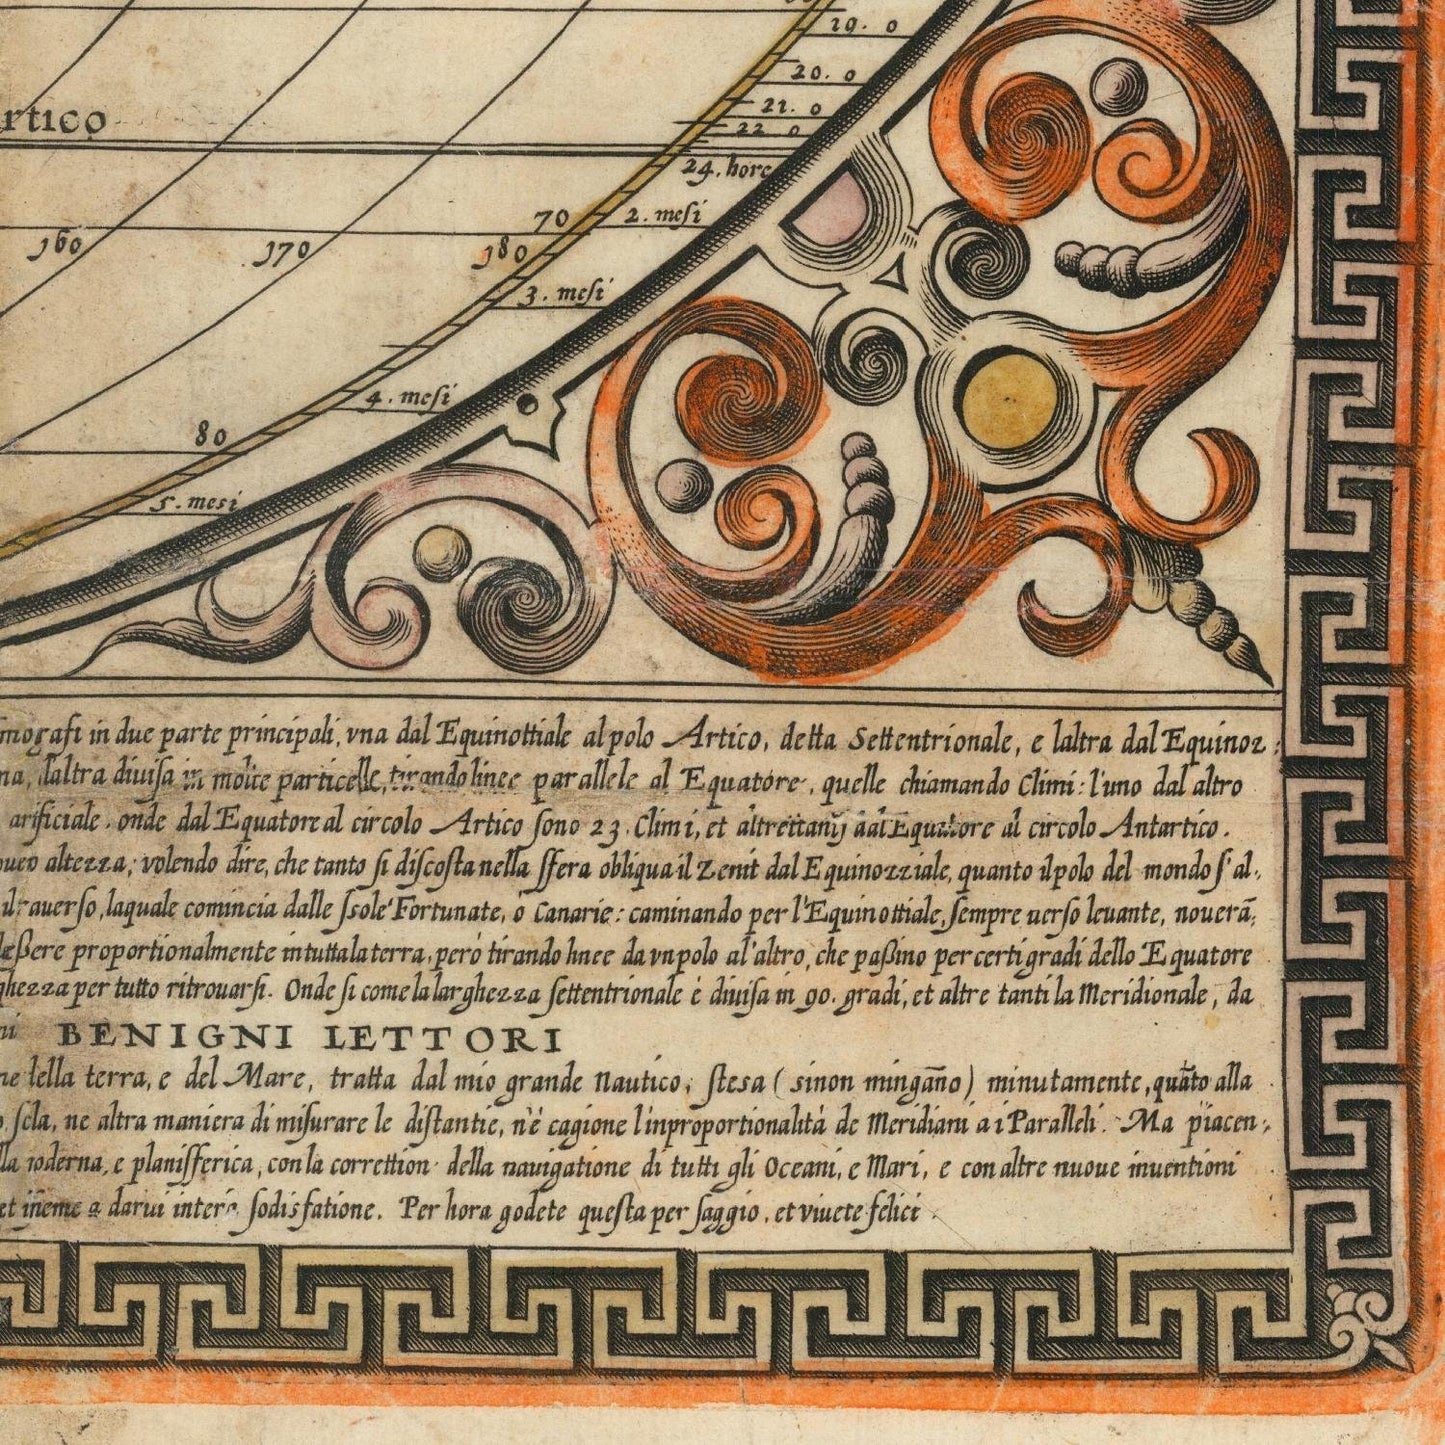 19. 0
20. 0
21. 0
rtico
22 0
24. hore
70 2. mesi
160 170 180
3. mesi
4. mesi
80
5. mesi
mografi in due parte principali, vna dal Equinottiale al polo Artico, detta Settentrionale, e laltra dal Equinoz:
na, laltra diuisa in molte particelle, tirando linee parallele al Equatore, quelle chiamando Climi: l'uno dal altro
arificiale. onde dal Equatore al circolo Artico sono 23. Climi, et altrettanij dal Equatore al circolo Antartico.
altezza; volendo dire, che tanto si discosta nella sfera obliqua il Zenit dal Equinozziale, quanto il polo del mondo s'al-,
il rauerso, laquale comincia dalle Isole Fortunate, o Canarie: caminando per l'Equinottiale, sempre uerso leuante, nouerã-,
eßere proportionalmente in tutta la terra, però tirando linee da vn polo al'altro, che paßino per certi gradi dello Equatore
ghezza per tutto ritrouarsi. Onde si come la larghezza settentrionale è diuisa in 90. gradi, et altre tanti la Meridionale, da
ni BENIGNI LETTORI
ne della terra, e del Mare, tratta dal mio grande nautico, stesa (sinon mingãno) minutamente, quãto alla
scla, ne altra maniera di misurare le distantie, n'è cagione l'inproportionalità de Meridiani a i Paralleli. Ma piacen-,
lla roderna, e planisferica, con la correttion della nauigatione di tutti gli Oceani, e Mari, e con altre nuoue inuentioni
et ineme a darui sodisfatione. Per hora godete questa per saggio, et viuete felici.